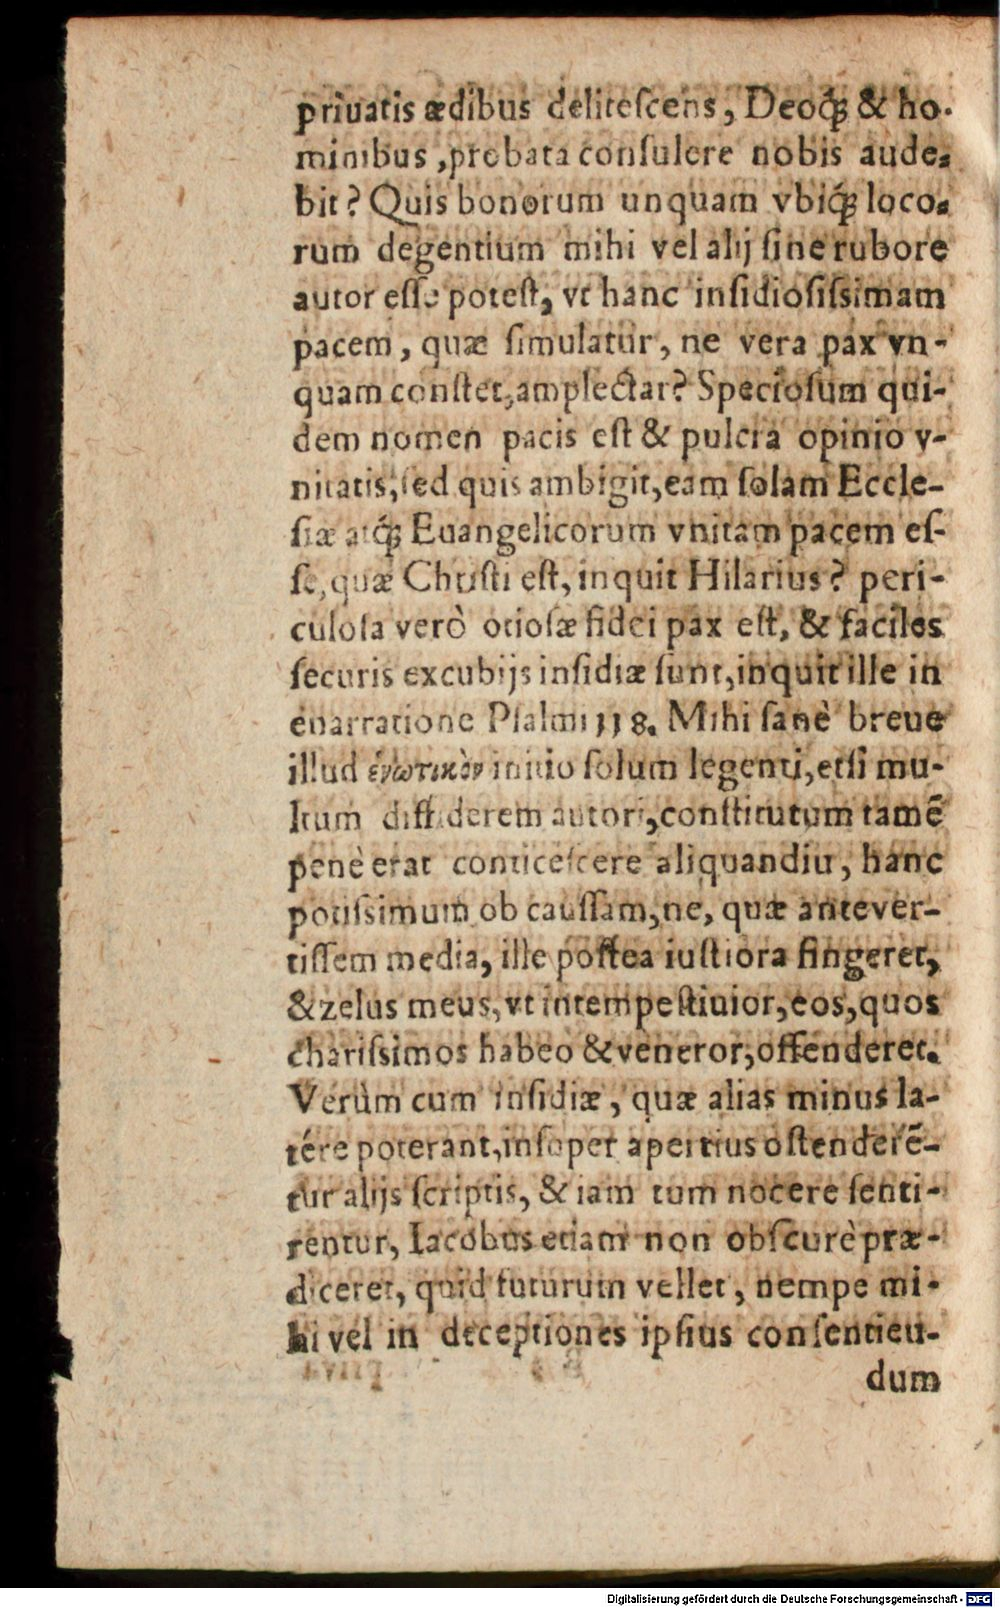 priuatis ædibus delitescens, Deoq́; & ho-
minibus, probata consulere nobis aude-
bit? Quis bonorum unquam vbiq́; loco-
rum degentium mihi vel alij sine rubore
autor esse potest, vt hanc insidiosissimam
pacem, quæ simulatur, ne vera pax vn-
quam constet, amplectar? Speciosum qui-
dem nomen pacis est & pulcra opinio v-
nitatis, sed quis ambigit, eam solam Eccle-
siæ atq́; Euangelicorum vnitam pacem es-
se, quæ Christi est, inquit Hilarius? peri-
culosa verò otiosæ fidei pax est, & faciles
securis excubijs insidiæ sunt, inquit ille in
enarratione Psalmi 118. Mihi sanè breue
illud ἑνωτικὸν initio solum legenti, etsi mu-
ltum diffiderem autori, constitutum tamē
penè erat conticescere aliquandiu, hanc
potissimum ob caussam, ne, quæ antever-
tissem media, ille postea iustiora fingeret,
& zelus meus, vt intempestiuior, eos, quos
charissimos habeo & veneror, offenderet.
Verùm cum insidiæ, quæ alias minus la-
tére poterant, insuper apertius ostenderē-
tur alijs scriptis, & iam tum nocere senti-
rentur, Iacobus etiam non obscurè præ-
diceret, quid futurum vellet, nempe mi-
hi vel in deceptiones ipsius consentien-
dum
Digitalisierung gefördert durch die Deutsche Forschungsgemeinschaft - DFG